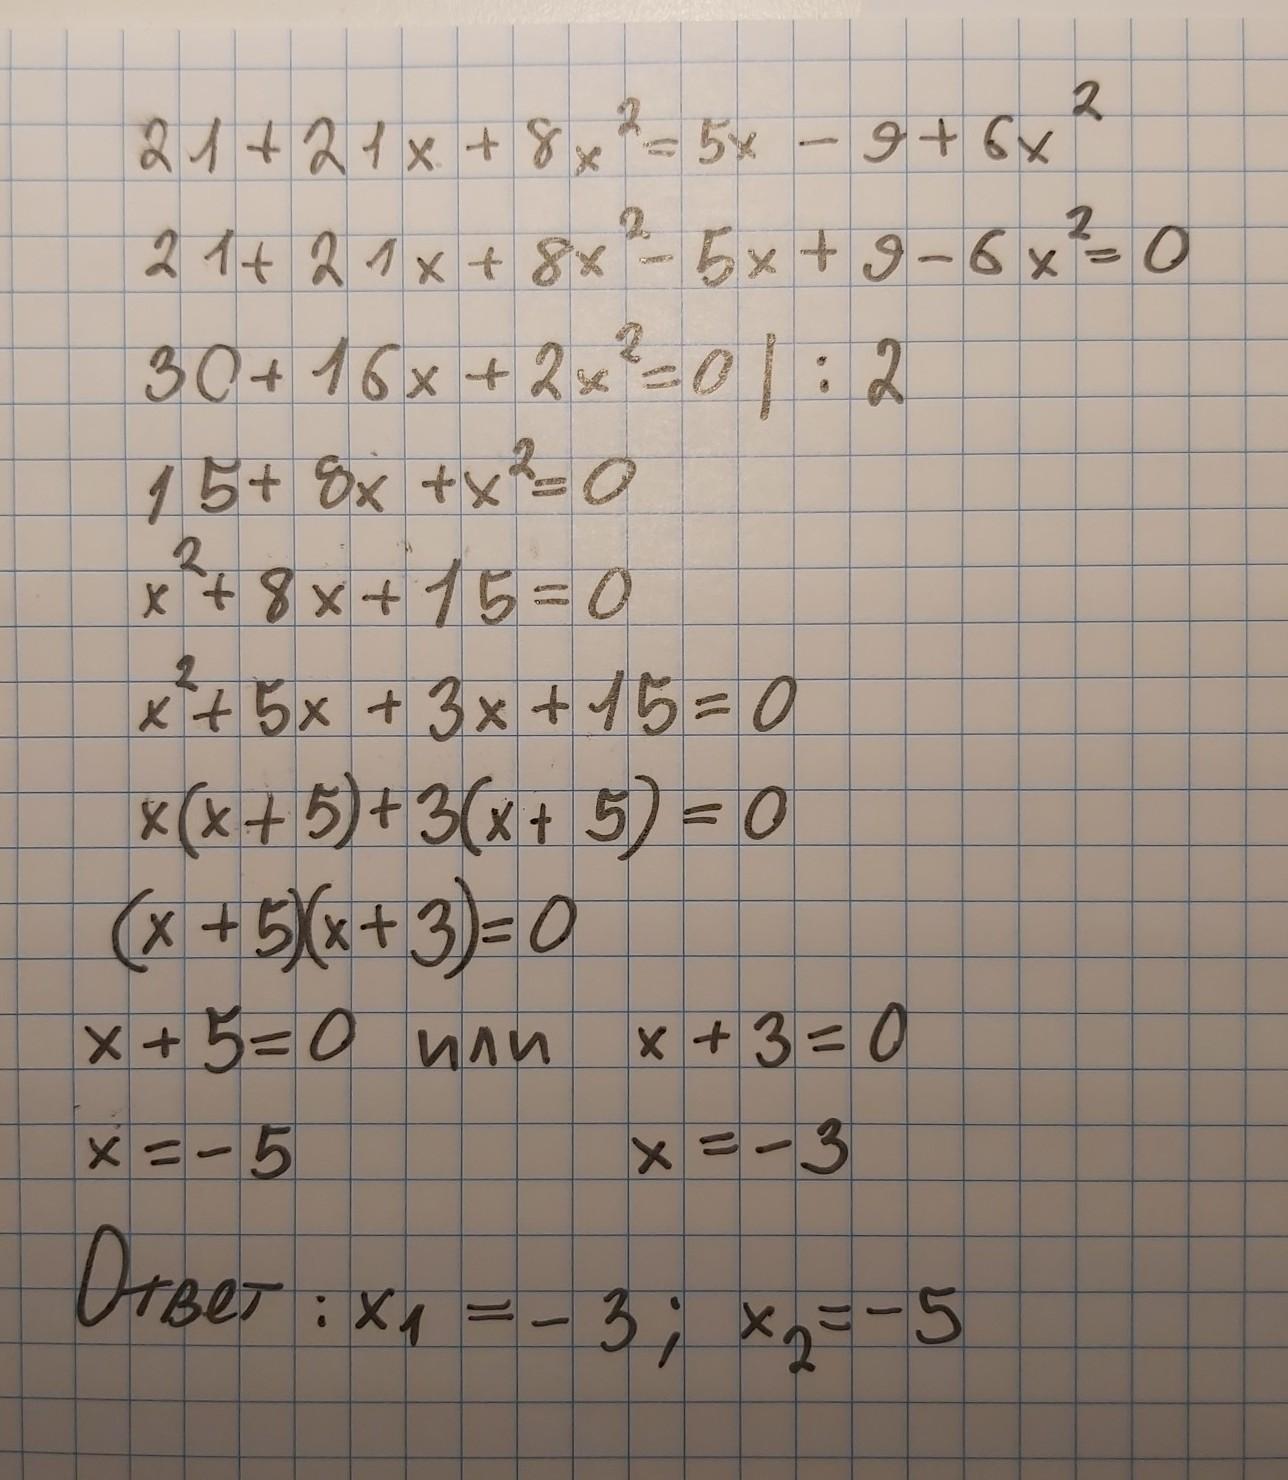 21 + 21x + 8x² = 5x - 9 + 6x²
21 + 21x + 8x² - 5x + 9 - 6x² = 0
30 + 16x + 2x² = 0 | : 2
15 + 8x + x² = 0
x² + 8x + 15 = 0
x² + 5x + 3x + 15 = 0
x(x + 5) + 3(x + 5) = 0
(x + 5)(x + 3) = 0
x + 5 = 0 или x + 3 = 0
x = -5 x = -3
Ответ : x₁ = -3; x₂ = -5